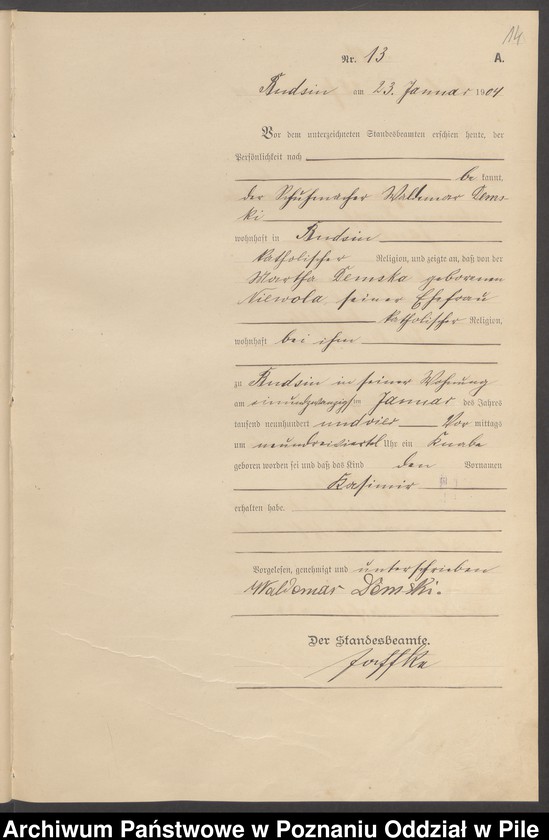 14
Nr. 13 A.
Rudsin am 23. Januar 1904
Vor dem unterzeichneten Standesbeamten erschien heute, der
Persönlichkeit nach
be kannt,
der Schuhmacher Waldemar Dems-
ki
wohnhaft in Rudsin
katholischer Religion, und zeigte an, daß von der
Martha Demska geborenen
Niewola seiner Ehefrau
katholischer Religion,
wohnhaft bei ihm
zu Rudsin in seiner Wohnung
am einundzwanzigsten Januar des Jahres
tausend neunhundert und vier Vor mittags
um neundreiviertel Uhr ein Knabe
geboren worden sei und daß das Kind den Vornamen
Kasimir
erhalten habe.
Vorgelesen, genehmigt und unterschrieben
Waldemar Demski.
Der Standesbeamte.
Jaffke
Archiwum Państwowe w Poznaniu Oddział w Pile